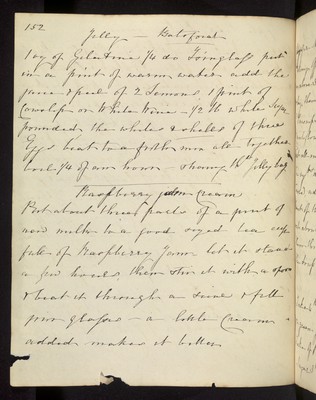 152
Jelly — Calvesfoot
1 oz of Gelatine 1/4 do Isinglass put
in a pint of warm water add the
juice & peel of 2 Lemons 1 pint of
Cowslip or White Wine — 1/2 lb white Sugar
pounded the whites & shells of three
Eggs beat to a froth mix all together
boil 1/4 of an hour — strain thro Jelly bag
Raspberry Cream
Put about three parts of a pint of
new milk to a good sized tea cup
full of Raspberry Jam let it stand
a few hours then stir it with a spoon
& beat it through a sieve & fill
your glasses — a little Cream
added makes it better